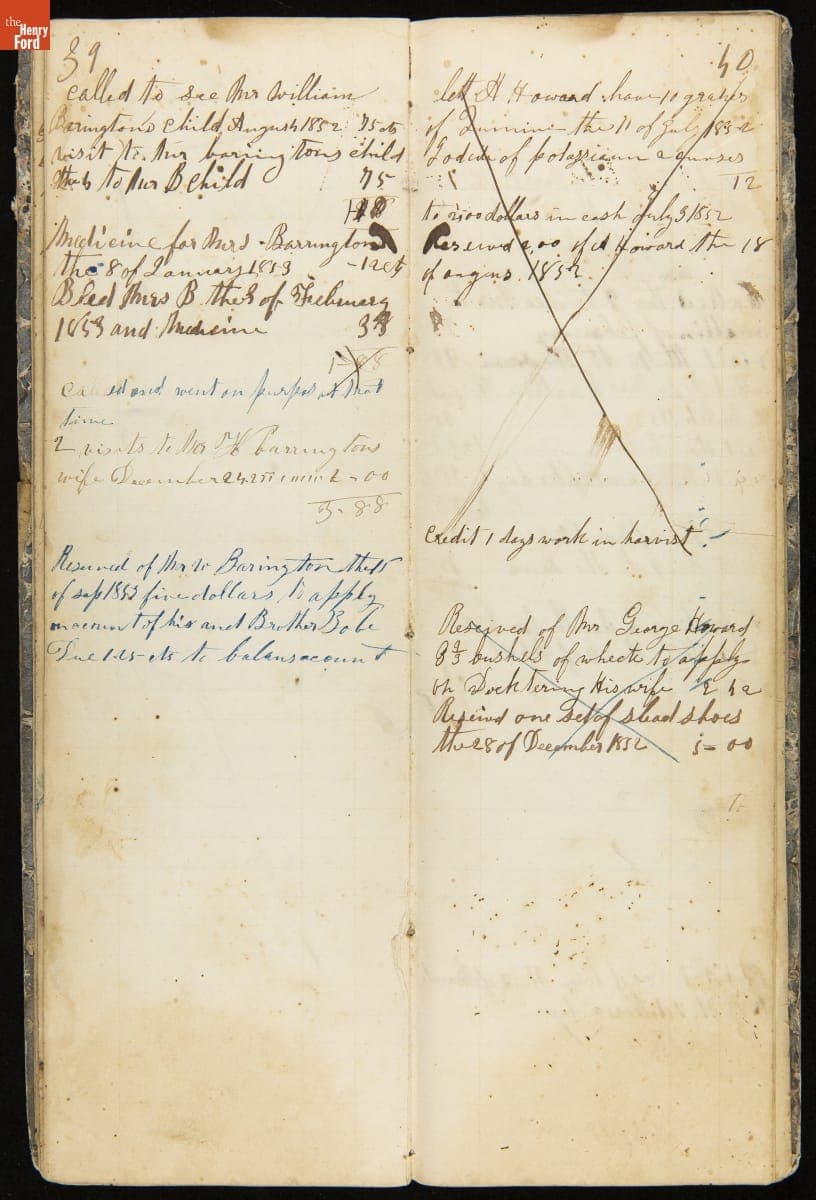 the
Henry
Ford
39
called to see Mr William
Baringtons child, August 1852 75 cts
visit to Mr baringtons child
to Mr B child 75
Medicine for Mrs - Barrington
the 8 of January 1853 - 12 cts
Bled Mrs B the 3 of February
1853 and Medicine 38
and went on purpos at that
time
2 visits to Mr H barringtons
wife December 2-00
3-88
Reseved of Mr W Barington the 15
of sep 1853 five dollars to apply
on acount of his and Brother Bobe
Due 1-25 cts to balans acount
40
lett A Howard have 10 grains
of the 11 of July 1852
Iodide of potassium 2 ounses
12
to 2.00 dollars in cash July 3 1852
Reseived 2,00 of A Howard the 18
of 1852
Credit 1 days work in harvist
Reseived of Mr George Howard
bushels of wheete to apply
on Docktering His wife
Reseivd one set of slead shoes
the 28 of December 1852 5-00